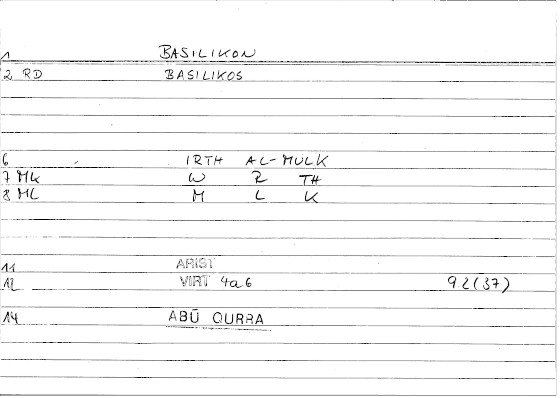 1 BASILIKON
2 RD BASILIKOS
6 IRTH AL-MULK
7 MK W R TH
8 ML M L K
11 ARIST
12 VIRT 4a6 9.2(37)
14 ABŪ QURRA